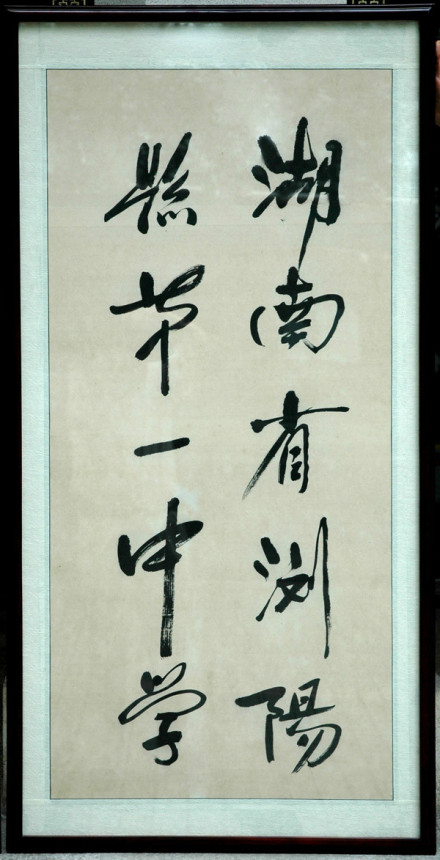 湖南省浏陽
縣第一中学